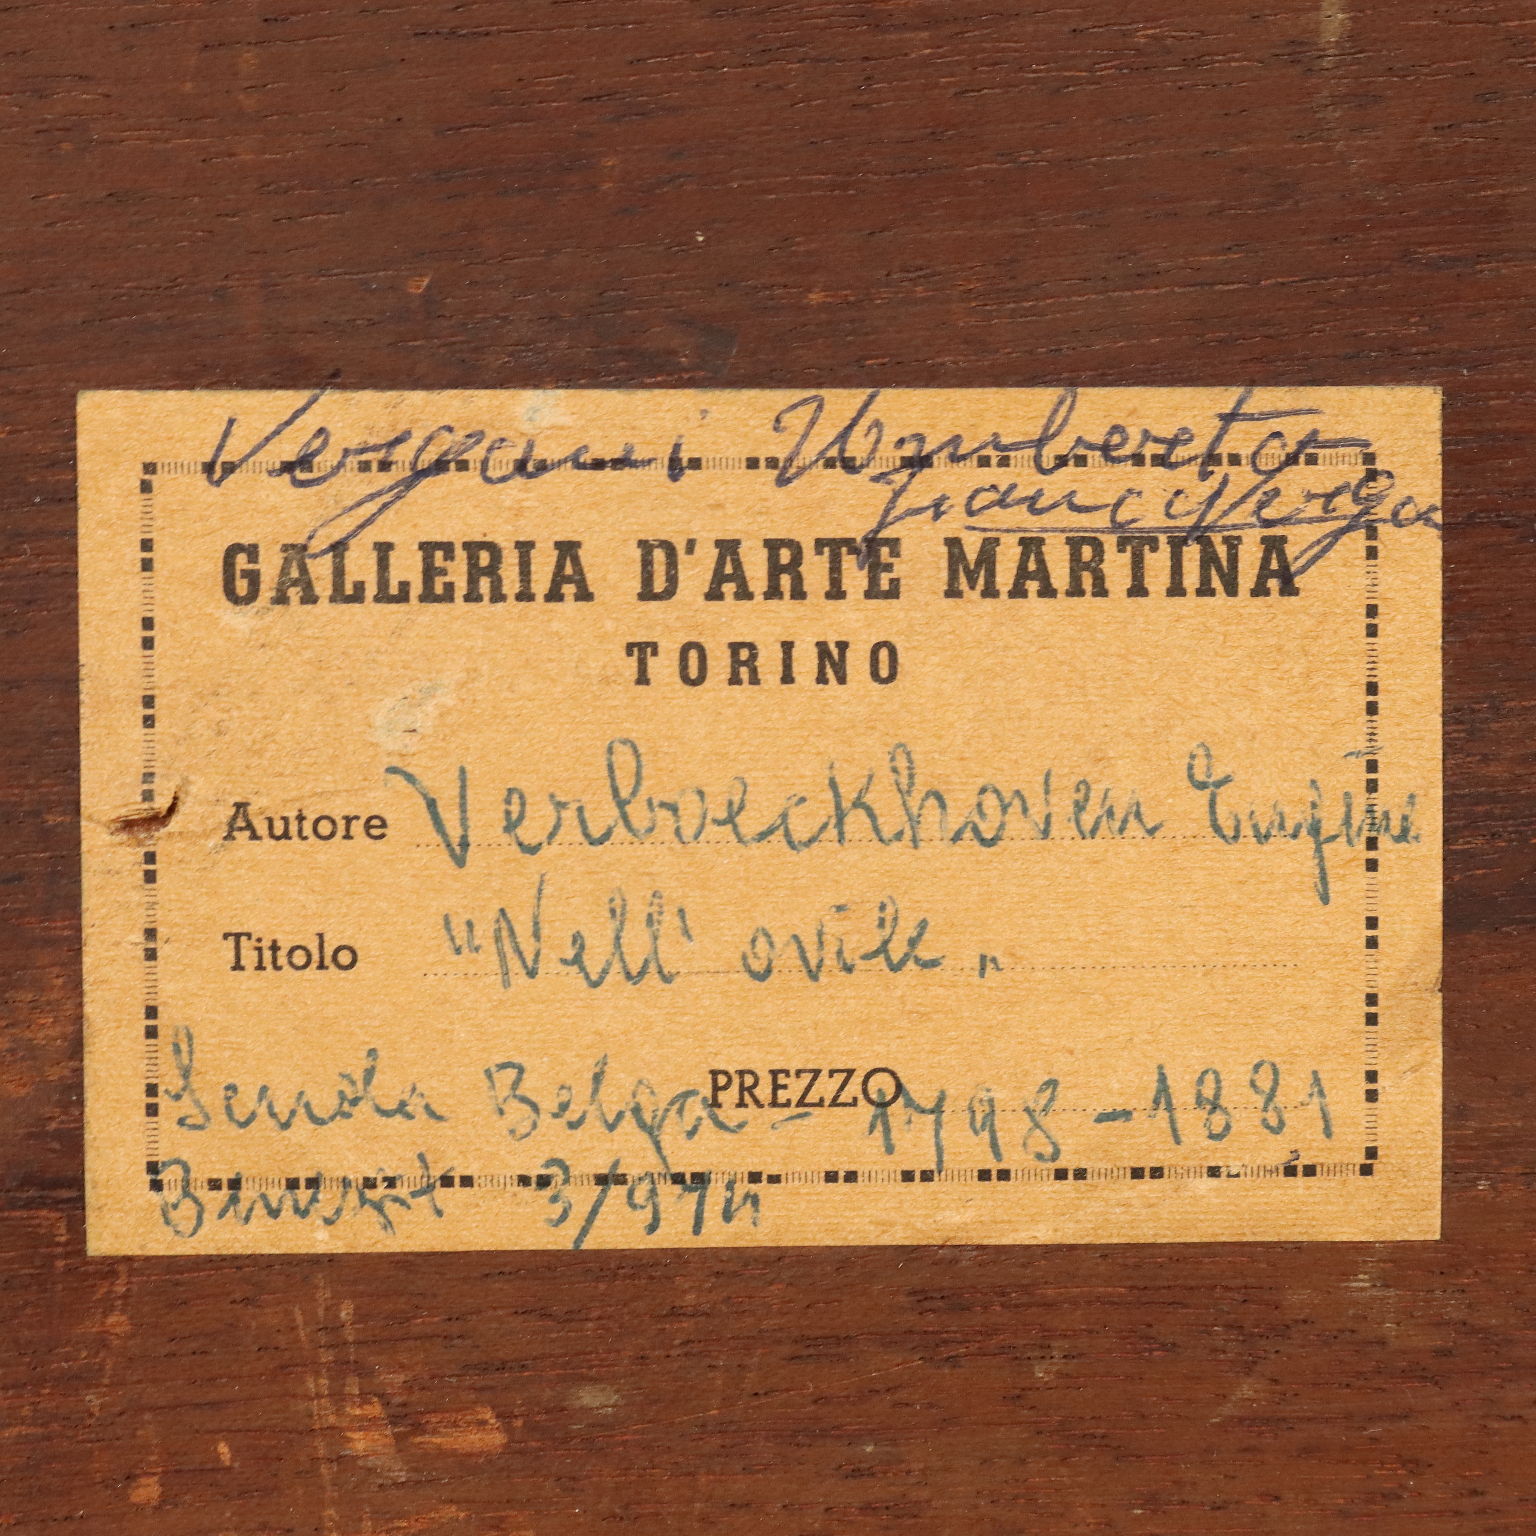 Vergani Umberto
GALLERIA D'ARTE MARTINA
TORINO
Autore Verboeckhoven Eugène
Titolo "Nell' ovile"
PREZZO
Scuola Belga - 1798-1881
Benezit 3/974